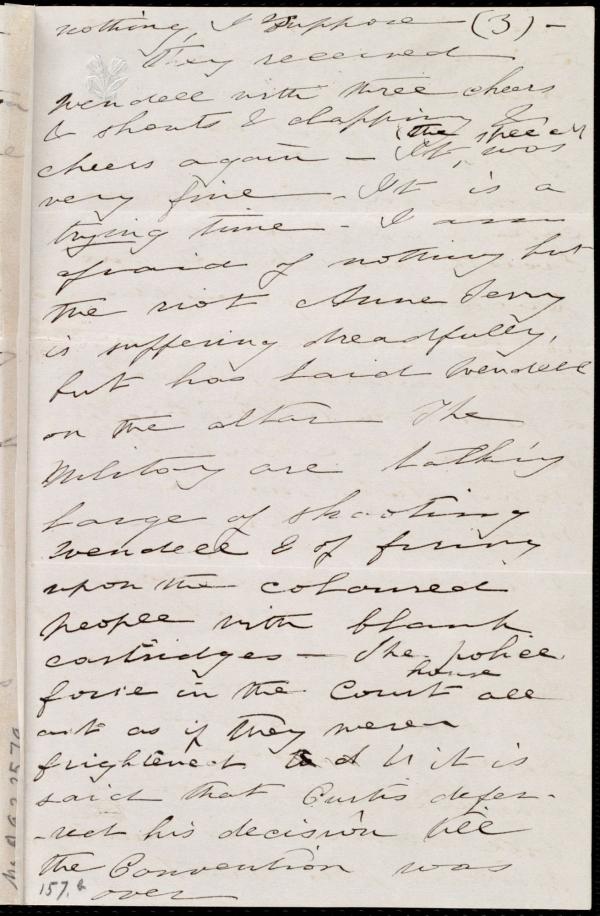 nothing, I suppose (3) -
They received
Wendell with three cheers
& shouts & clapping &
cheers again - the speech was
very fine - It is a
trying time - I am
afraid of nothing but
the riot Anne Terry
is suffering dreadfully,
but has laid Wendell
on the altar The
Military are talking
large of shooting
Wendell & of firing
upon the coloured
people with blank
cartridges - The police
force in the Court house all
act as if they were
frightened it is
said that Curtis defer-
-red his decision till
the Convention was
over
157. b